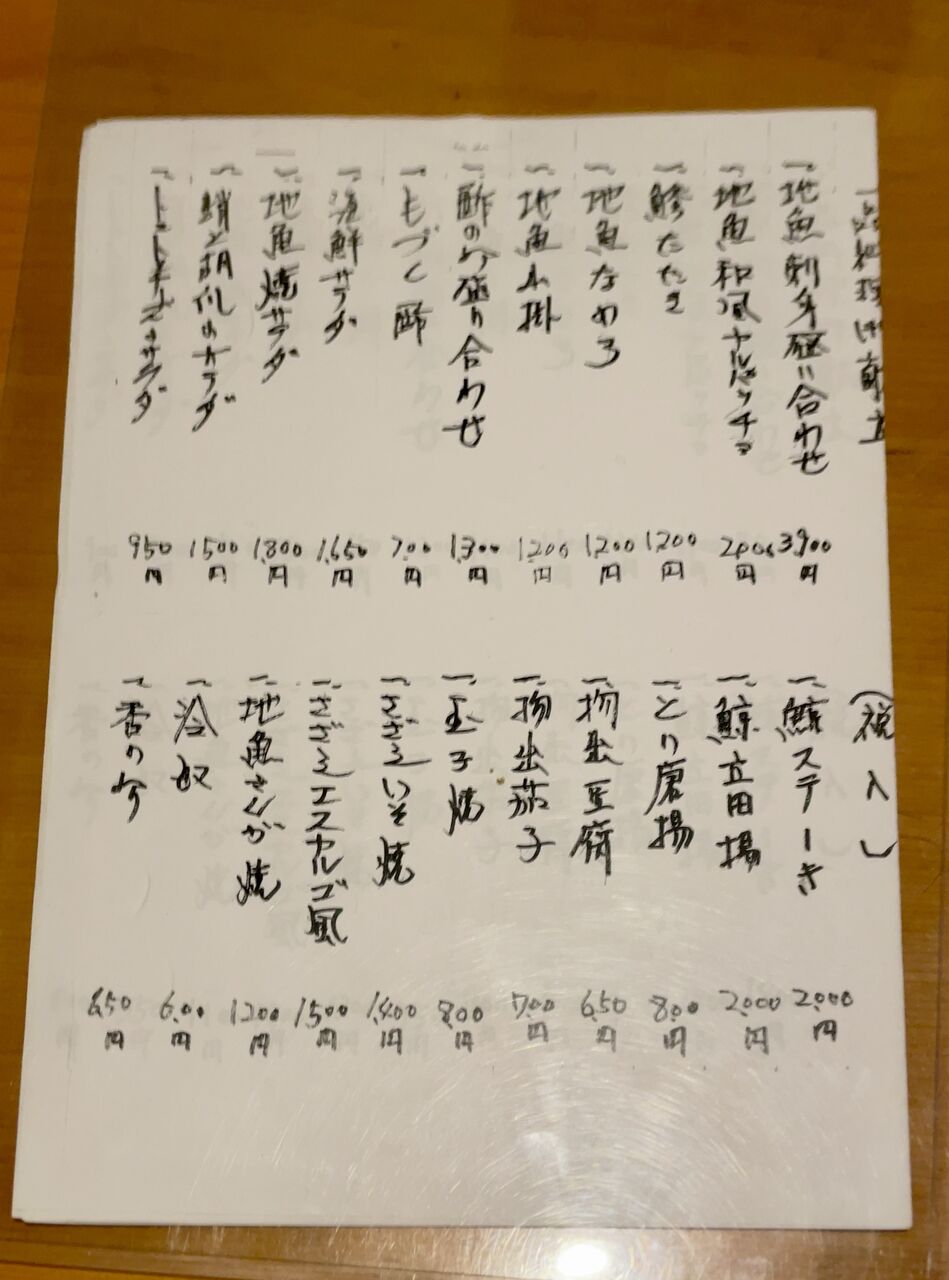 一品料理御献立
一、地魚刺身盛り合わせ 3,900円
一、地魚和風カルパッチョ 2,000円
一、鯵たたき 1,200円
一、地魚なめろ 1,200円
一、地魚水掛 1,200円
一、酢の物盛り合わせ 1,300円
一、もづく酢 700円
一、海鮮サラダ 1,650円
一、地魚焼サラダ 1,800円
一、蛸と胡瓜のサラダ 1,500円
一、トマトチーズのサラダ 950円
(税入し)
一、鯨ステーキ 2,000円
一、鯨立田揚 2,000円
一、とり唐揚 800円
一、揚出豆腐 650円
一、揚出茄子 700円
一、玉子焼 800円
一、さざえいそ焼 1,400円
一、さざえエスカルゴ風 1,500円
一、地魚さんが焼 1,200円
一、冷奴 600円
一、香の物 650円